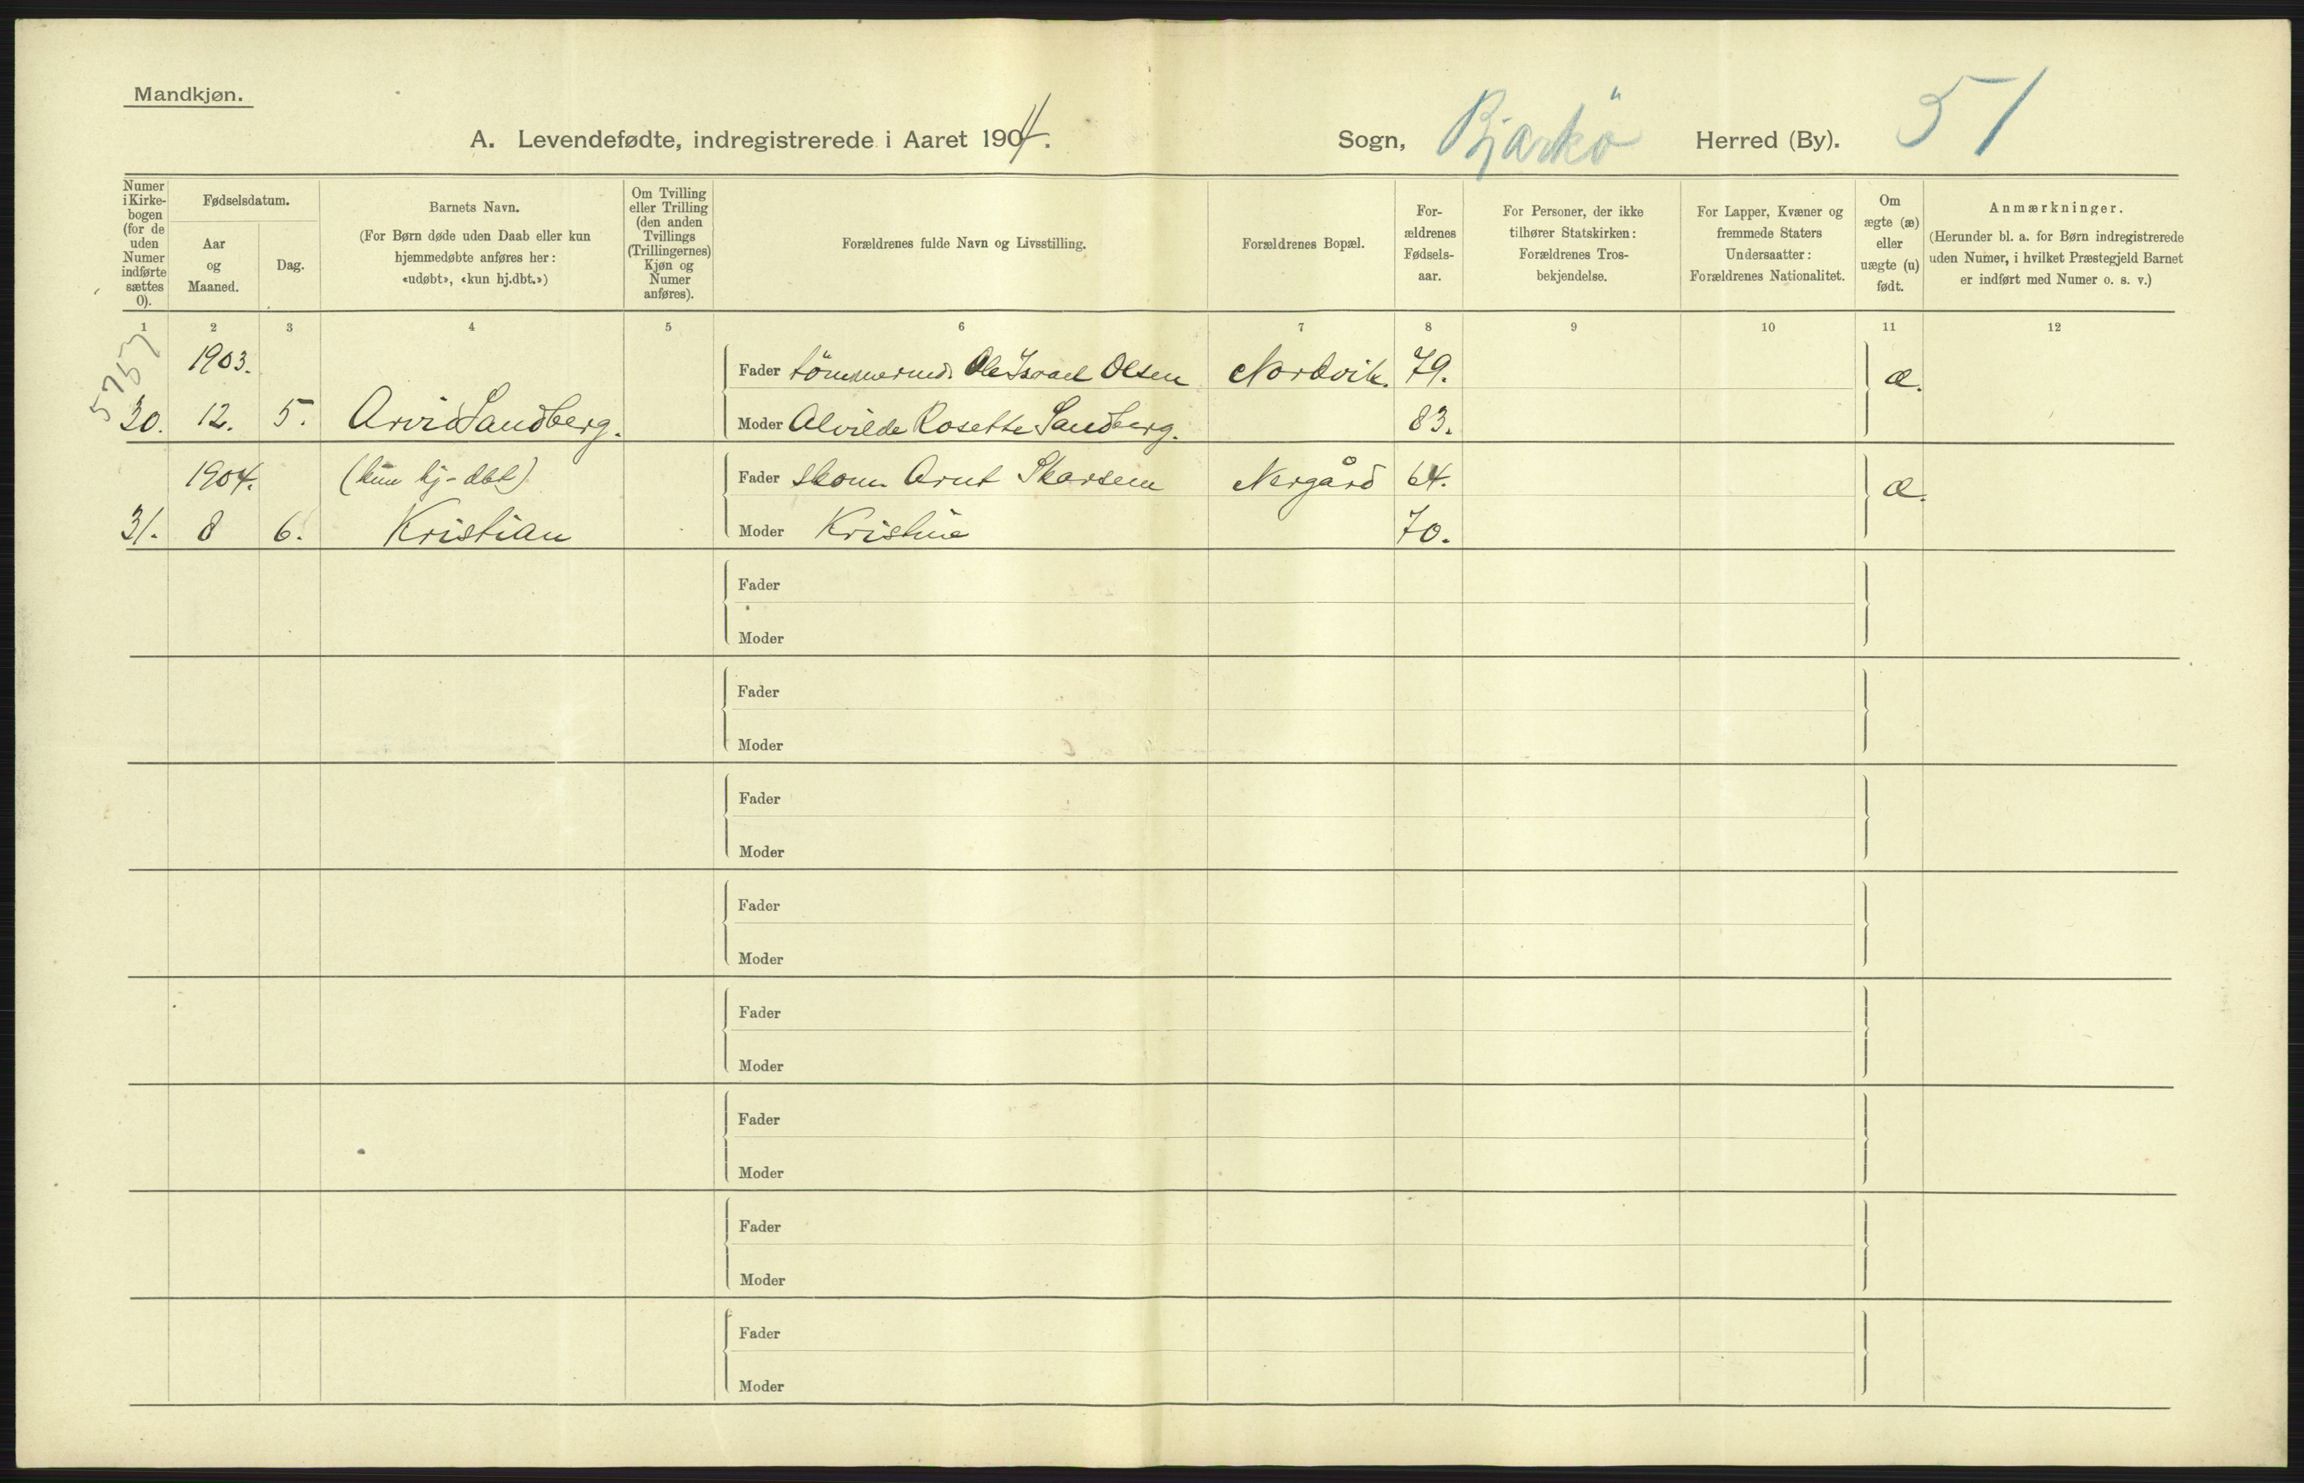 Mandkjøn.
A. Levendefødte, indregistrerede i Aaret 1904.
Sogn, Bjarkö Herred (By). 51
Numer i Kirkebogen (for de uden Numer indførte sættes 0).
Fødselsdatum.
Aar og Maaned.
Dag.
Barnets Navn.
(For Børn døde uden Daab eller kun hjemmedøbte anføres her: «udøbt», «kun hj.dbt.»)
Om Tvilling eller Trilling (den anden Tvillings (Trillingernes) Kjøn og Numer anføres).
Forældrenes fulde Navn og Livsstilling.
Forældrenes Bopæl.
Forældrenes Fødselsaar.
For Personer, der ikke tilhører Statskirken: Forældrenes Trosbekjendelse.
For Lapper, Kvæner og fremmede Staters Undersaatter: Forældrenes Nationalitet.
Om ægte (æ) eller uægte (u) født.
Anmærkninger.
(Herunder bl. a. for Børn indregistrerede uden Numer, i hvilket Præstegjeld Barnet er indført med Numer o. s. v.)
1 2 3 4 5 6 7 8 9 10 11 12
5757
1903. Fader tömmermd. Ole Israel Olsen Nordvik. 79. æ.
30. 12. 5. Arvid Sandberg. Moder Alvilde Rosette Sandberg. 83.
1904. (kun hj-dbt) Fader skom. Arnt Skarsem Nergård 64. æ.
31. 8 6. Kristian Moder Kristine 70.
Fader
Moder
Fader
Moder
Fader
Moder
Fader
Moder
Fader
Moder
Fader
Moder
Fader
Moder
Fader
Moder